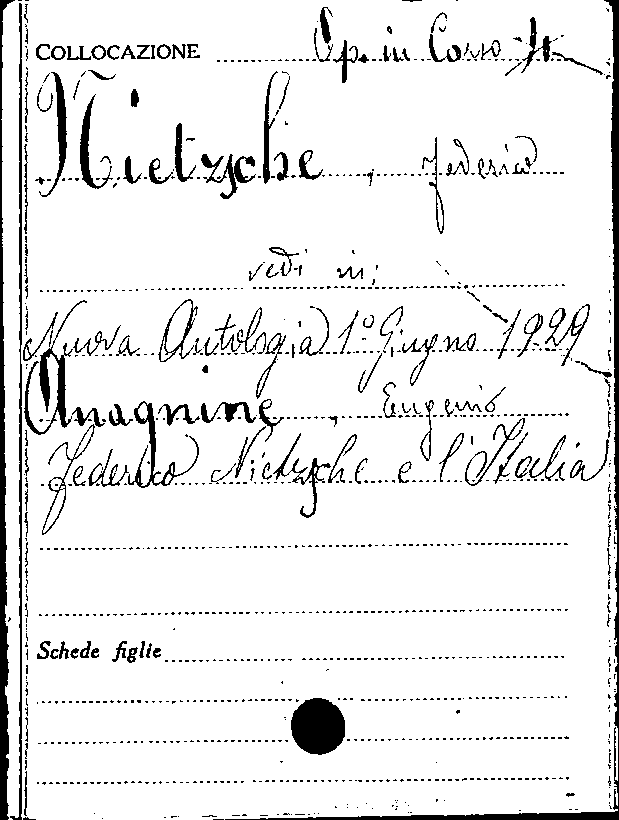 COLLOCAZIONE Op. in Corso
Nietzsche, Federico
vedi in:
Nuova Antologia 1º Giugno 1929
Anagnine, Eugenio
Federico Nietzsche e l'Italia
Schede figlie